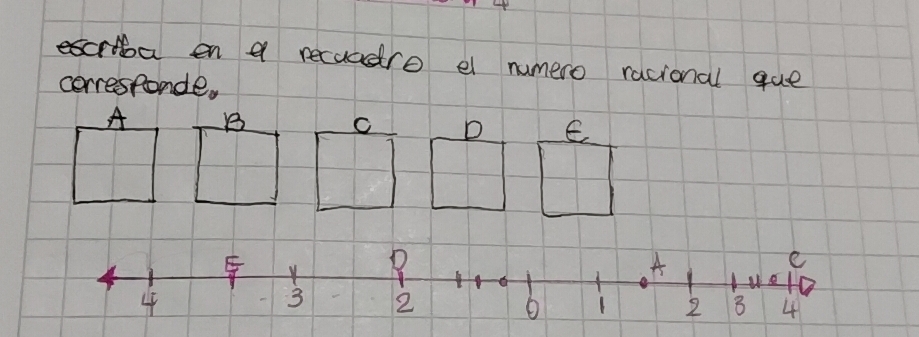 escriba en el recuadro el numero racional que
corresponde.
A B C D E
E D A C
4 3 2 0 1 2 3 4